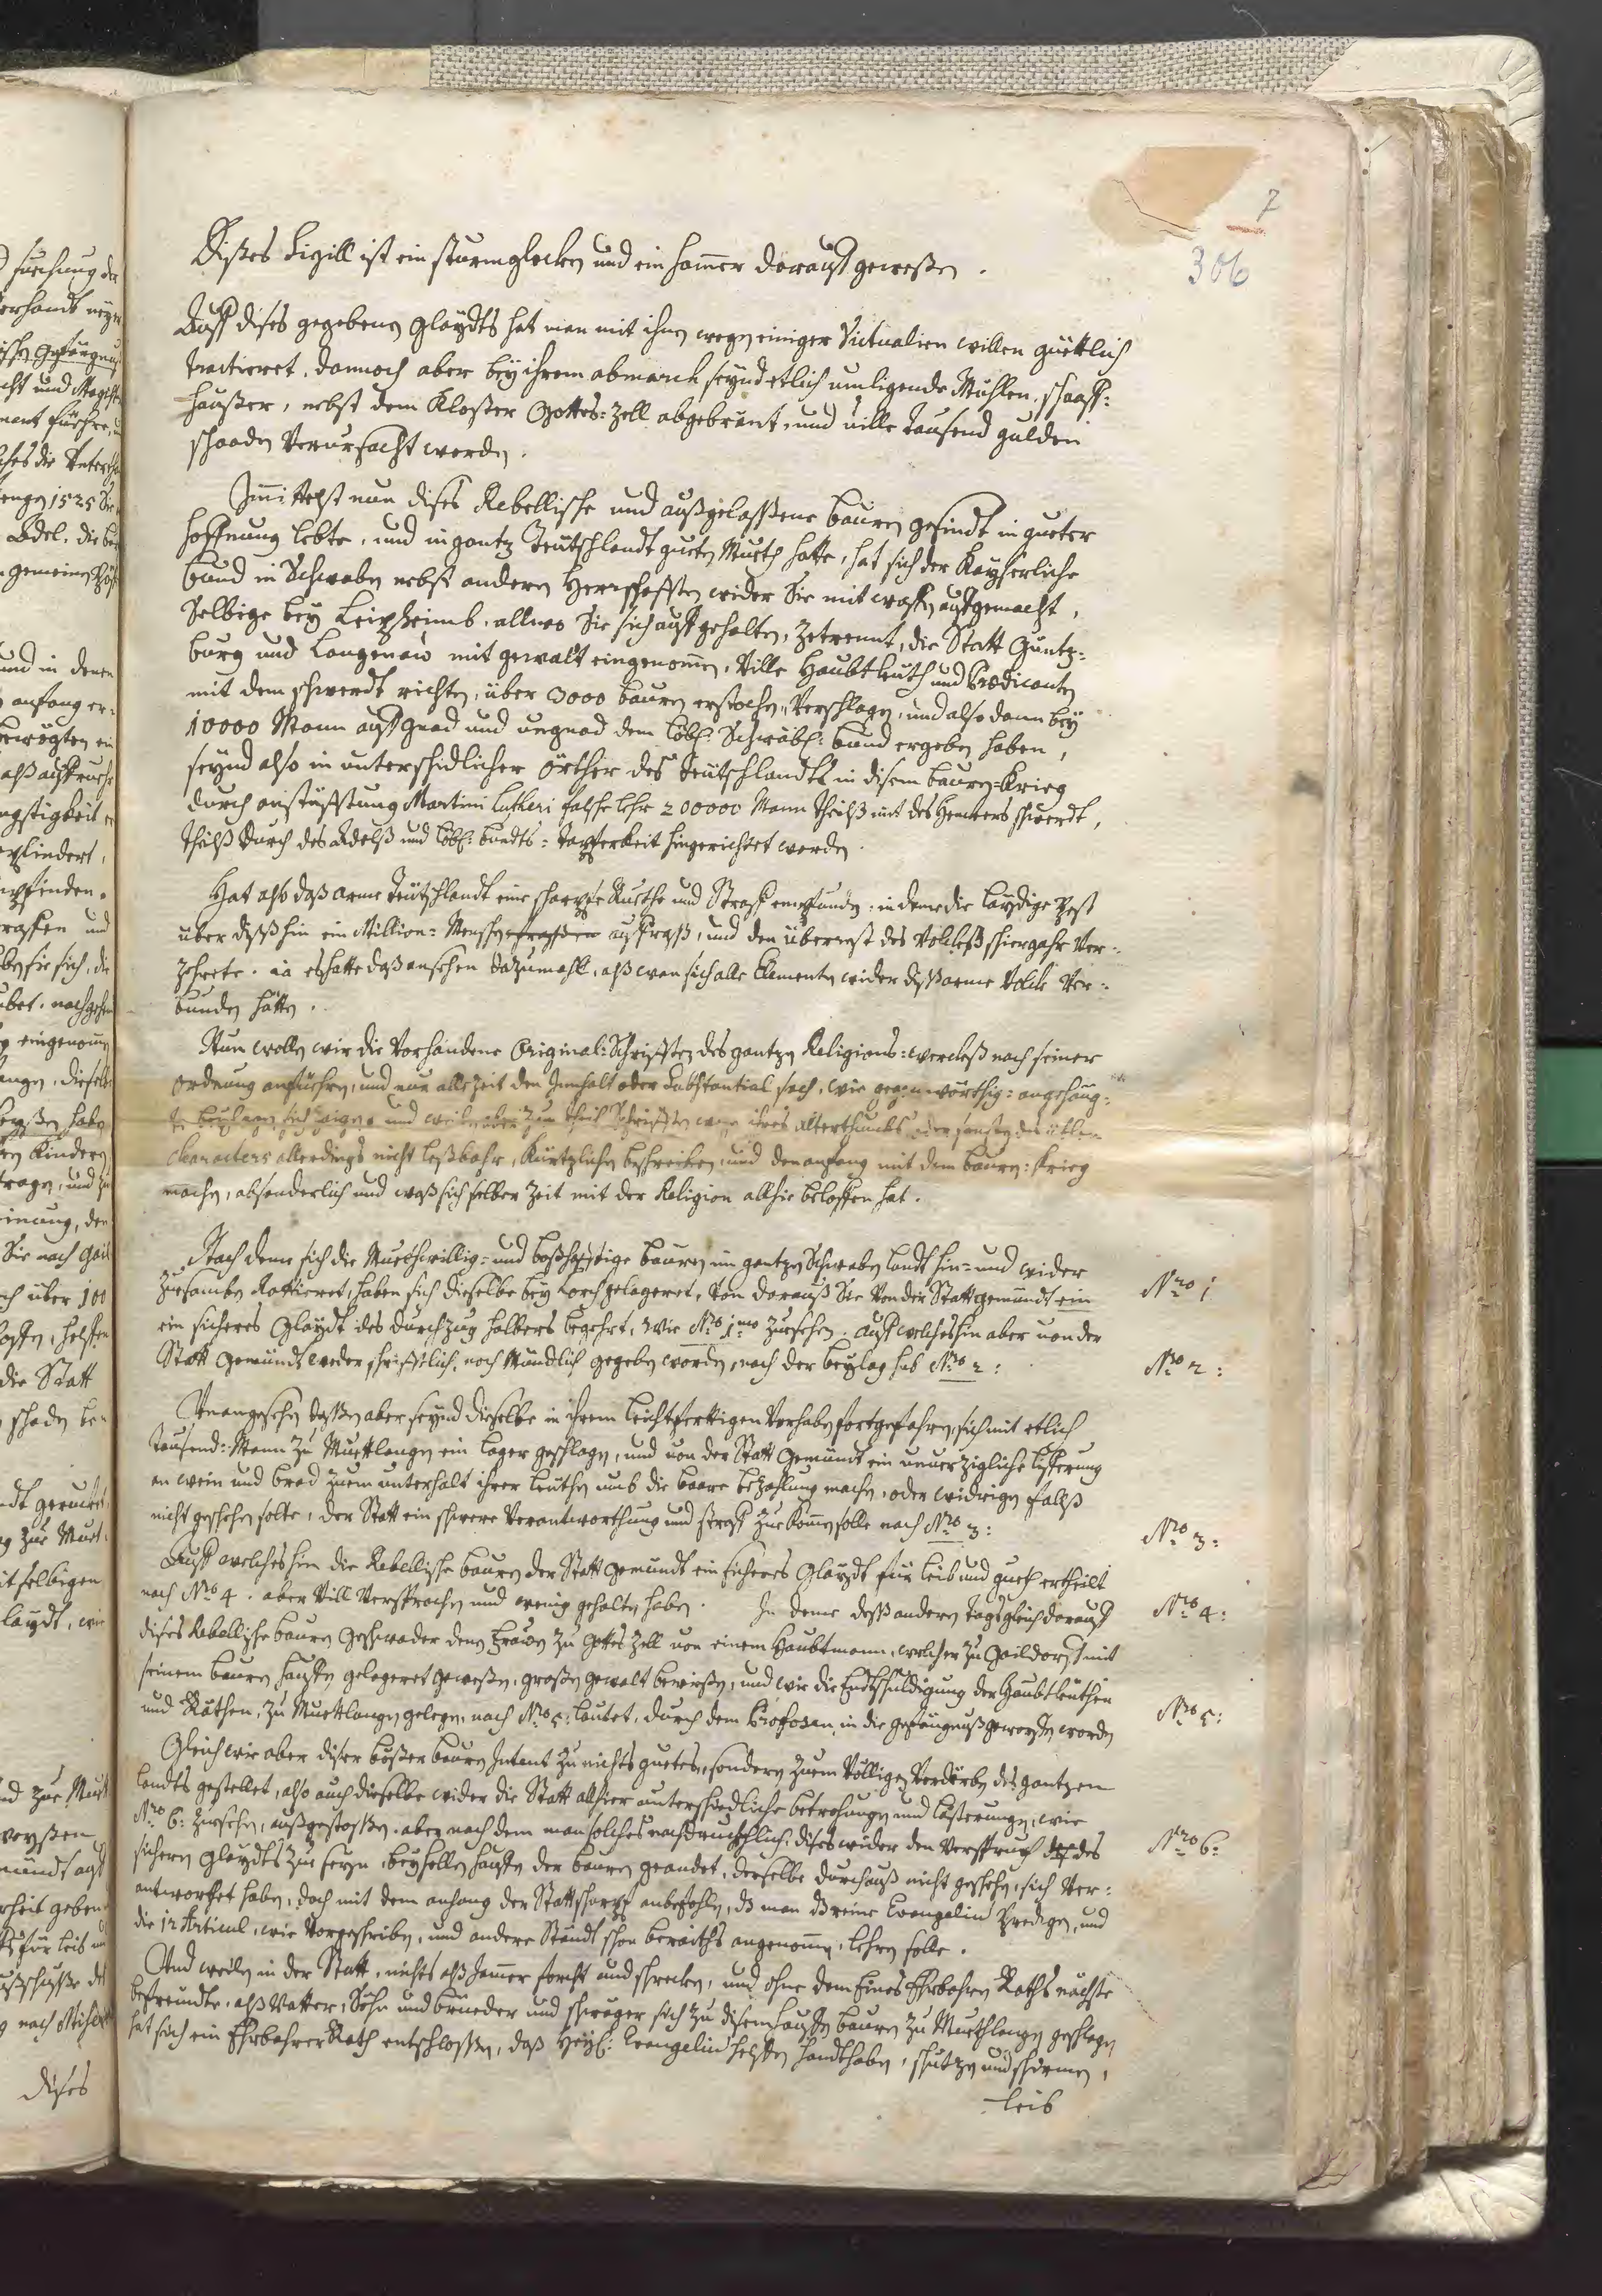 7
306
Dises Sigill ist ein sturmglocken und ein hamer darauf geweßen.
Auff dises gegebene glaydts hat man mit ihnen wegen einiger Victualien willen güettlich
tractieret. dannoch aber bey ihrem abmarch seynd etlich umligende Mühlen, schaaff:
haußer, nebst dem Kloster Gottes=Zell abgebrant, und ville Tausend gulden
schaaden Verursacht worden.
Immittelst nun dises Rebellische und außgelassene bauren gesindt in gueter
hoffnung lebte, und in gantz Teutschlandt guten Mueth hatte, hat sich der Kayserliche
bund in Schwaben nebst anderen Herrschafften wider Sie mit waffen aufgemacht,
Selbige bey Leipheimb, allwo Sie sich auffgehalten, Zetrennt, die Statt Guntz=
burg und Langenaw mit gewalt eingenomen, Ville Haubtleuth und Praedicanten
mit dem schwerdt richten, über 3000 bauren erstochen, Verschlagen, und also dann bey
10000 Mann auf gnad und ungnad dem löbl: Schwäbl: bund ergeben haben,
seynd also in unterschidlicher örther des Teutschlandts in disem bauren=Krieg
durch anstüfftung Martini Lutheri falsche lehr 200000 Mann theilß mit des Henckers schwerdt,
theilß durch des Adelß und löbl: bundts=tapferkeit hingerichtet worden.
Hat also daß arme Teutschlandt eine scharpfe Ruethe und Straff empfunden, in deme die laydige Pest
über diß hin ein Million=Menschen auffraß, und den überrest des Volckhß schier gahr Ver=
zehrete. ia es hatte daß ansehen dazumahl, alß wan sich alle Elementen wider diß arme Volck Ver=
bunden hätten.
Nun wollen wir die Vorhandene Original=Schrifften des gantzen Religions=wercks nach seiner
ordnung anfuehren, und nur alle Zeit den Innhalt oder Substantial sach, wie gegenwürthig=angehäng=
te beylagen sich zaigen, und weilen aber zum theil Schrifften wegen ihres alterthumbs oder sonsten des üblen
Characters allerdings nicht leßbahr, Kürtzlichen beschreiben, und den anfang mit dem bauren=Krieg
machen, absonderlich und waß sich selber Zeit mit der Religion allhie beloffen hat.
Nach deme sich die Muethwillig= und boßhafftige bauren im gantzen Schwabenlandt hin= und wider
Zuesamben Rottieret, haben sich dieselbe bey Lorch gelageret, Von darauß Sie Von der Statt gemündt ein
ein sicheres Glaydt des durchzug halbers begehrt, wie Nro 1mo Zuesehen. auf welcheshin aber von der
Statt gemündt weder schrifftlich, noch Mündlich gegeben worden, nach der beylag sub Nro 2:
Nro 1
Nro 2:
Unangesehen dessen aber seynd dieselbe in ihrem leichtfertigen Vorhaben fortgefahren, sich mit etlich
Tausend=Mann Zu Muettlangen ein lager geschlagen, und von der Statt Gemündt ein unverzigliche lifferung
an wein und brod Zuem unterhalt ihrer leuthen umb die baare bezahlung machen, oder widrigen fallß
nicht geschehen solte, der Statt ein schwere Verantworthung und straff Zuekomen solle nach Nro 3:
Nro 3:
Auff welches hin die Rebellische bauren der Statt gemündt ein sicheres Glaydt für leib und gueth ertheilt
nach Nro 4. aber Vill Versprochen und wenig gehalten haben. In deme deß anderen tags gleich darauf
dises Rebellische bauren geschwader denen Frawen Zu Gottes Zell von einem Haubtmann, welcher Zu Gaildorf mit
seinem bauren hauffen gelageret geweßen, großen gewalt bewißen, und wie die Entschuldigung der Haubtleuthen
und Räthen, Zu Muettlangen gelegen, nach Nro 5: lautet, durch dem Profosen in die gefängnuß geworffen worden
Nro 4:
Nro 5:
Gleich wie aber diser boßer bauren Intent Zu nichts guetes, sondern Zuem Völligen Verdürben des gantzen
landts gestellet, also auch dieselbe wider die Statt allhier unterschiedliche betrohungen und lästerungen, wie
Nro 6: Zuesehen, außgestoßen. aber nach dem man solches nachdrucklich, dises wider den Verspruch des
sichern glaydts Zue seyn, bey hellen hauffen der bauren geandet, derselbe durchauß nicht geschehen, sich Ver=
antworthet haben, doch mit dem anhang der Statt scharpf anbefohlen, dz man dz reine Evangelium Predigen, und
die 12 Articul, wie Vorgeschriben, und andere Ständt schon beraiths angenomen, lehren solle.
Nro 6:
Und weilen in der Statt, nichts alß Jamer forcht und schrecken, und ohne dem Eines Ehrbahren Raths nächste
befreundte, alß Vatter, Söhn und brüeder und schwäger sich Zu disem hauffen bauren Zu Muethlangen geschlagen
hat sich ein Ehrbahrer Rath entschlossen, daß Heyl: Evangelium helffen handthaben, schutzen und schirmen,
leib